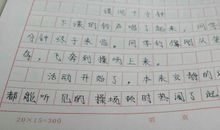 课间十分钟
下课的铃声响了起来，同学
分钟终于来临。同学们像
会，飞奔到操场上……
活动开始了，本来安静的
都能听见的操场顿时热闹了起
20×15=300